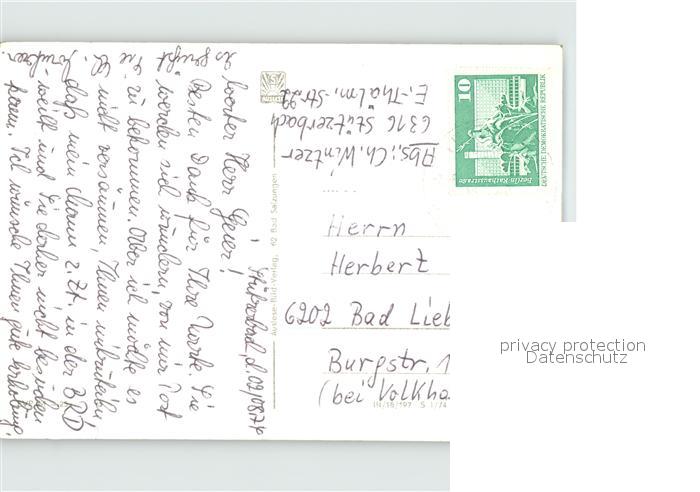 Stützerbach, d. 02/08/74
Werter Herr Geier!
Besten Dank für Ihre Karte. Sie
werden sich wundern, von mir Post
zu bekommen. Aber ich möchte es
nicht versäumen, Ihnen mitzuteilen
daß mein Mann z. Zt. in der BRD
weilt und Sie daher nicht besuchen
kann. Ich wünsche Ihnen gute Erholung.
Es grüßt
Sie
Ch.
Abs.: Ch. Wintzer
6316 Stützerbach
E.-Thälm.-Str. 22
10
Berlin-Rathausstraße
DEUTSCHE DEMOKRATISCHE REPUBLIK
Herrn
Herbert
6202 Bad Lieb
Burgstr. 1
(bei Volkha
Auslese-Bild-Verlag, 62 Bad Salzungen
IV/18/197 S 1/74
privacy protection
Datenschutz